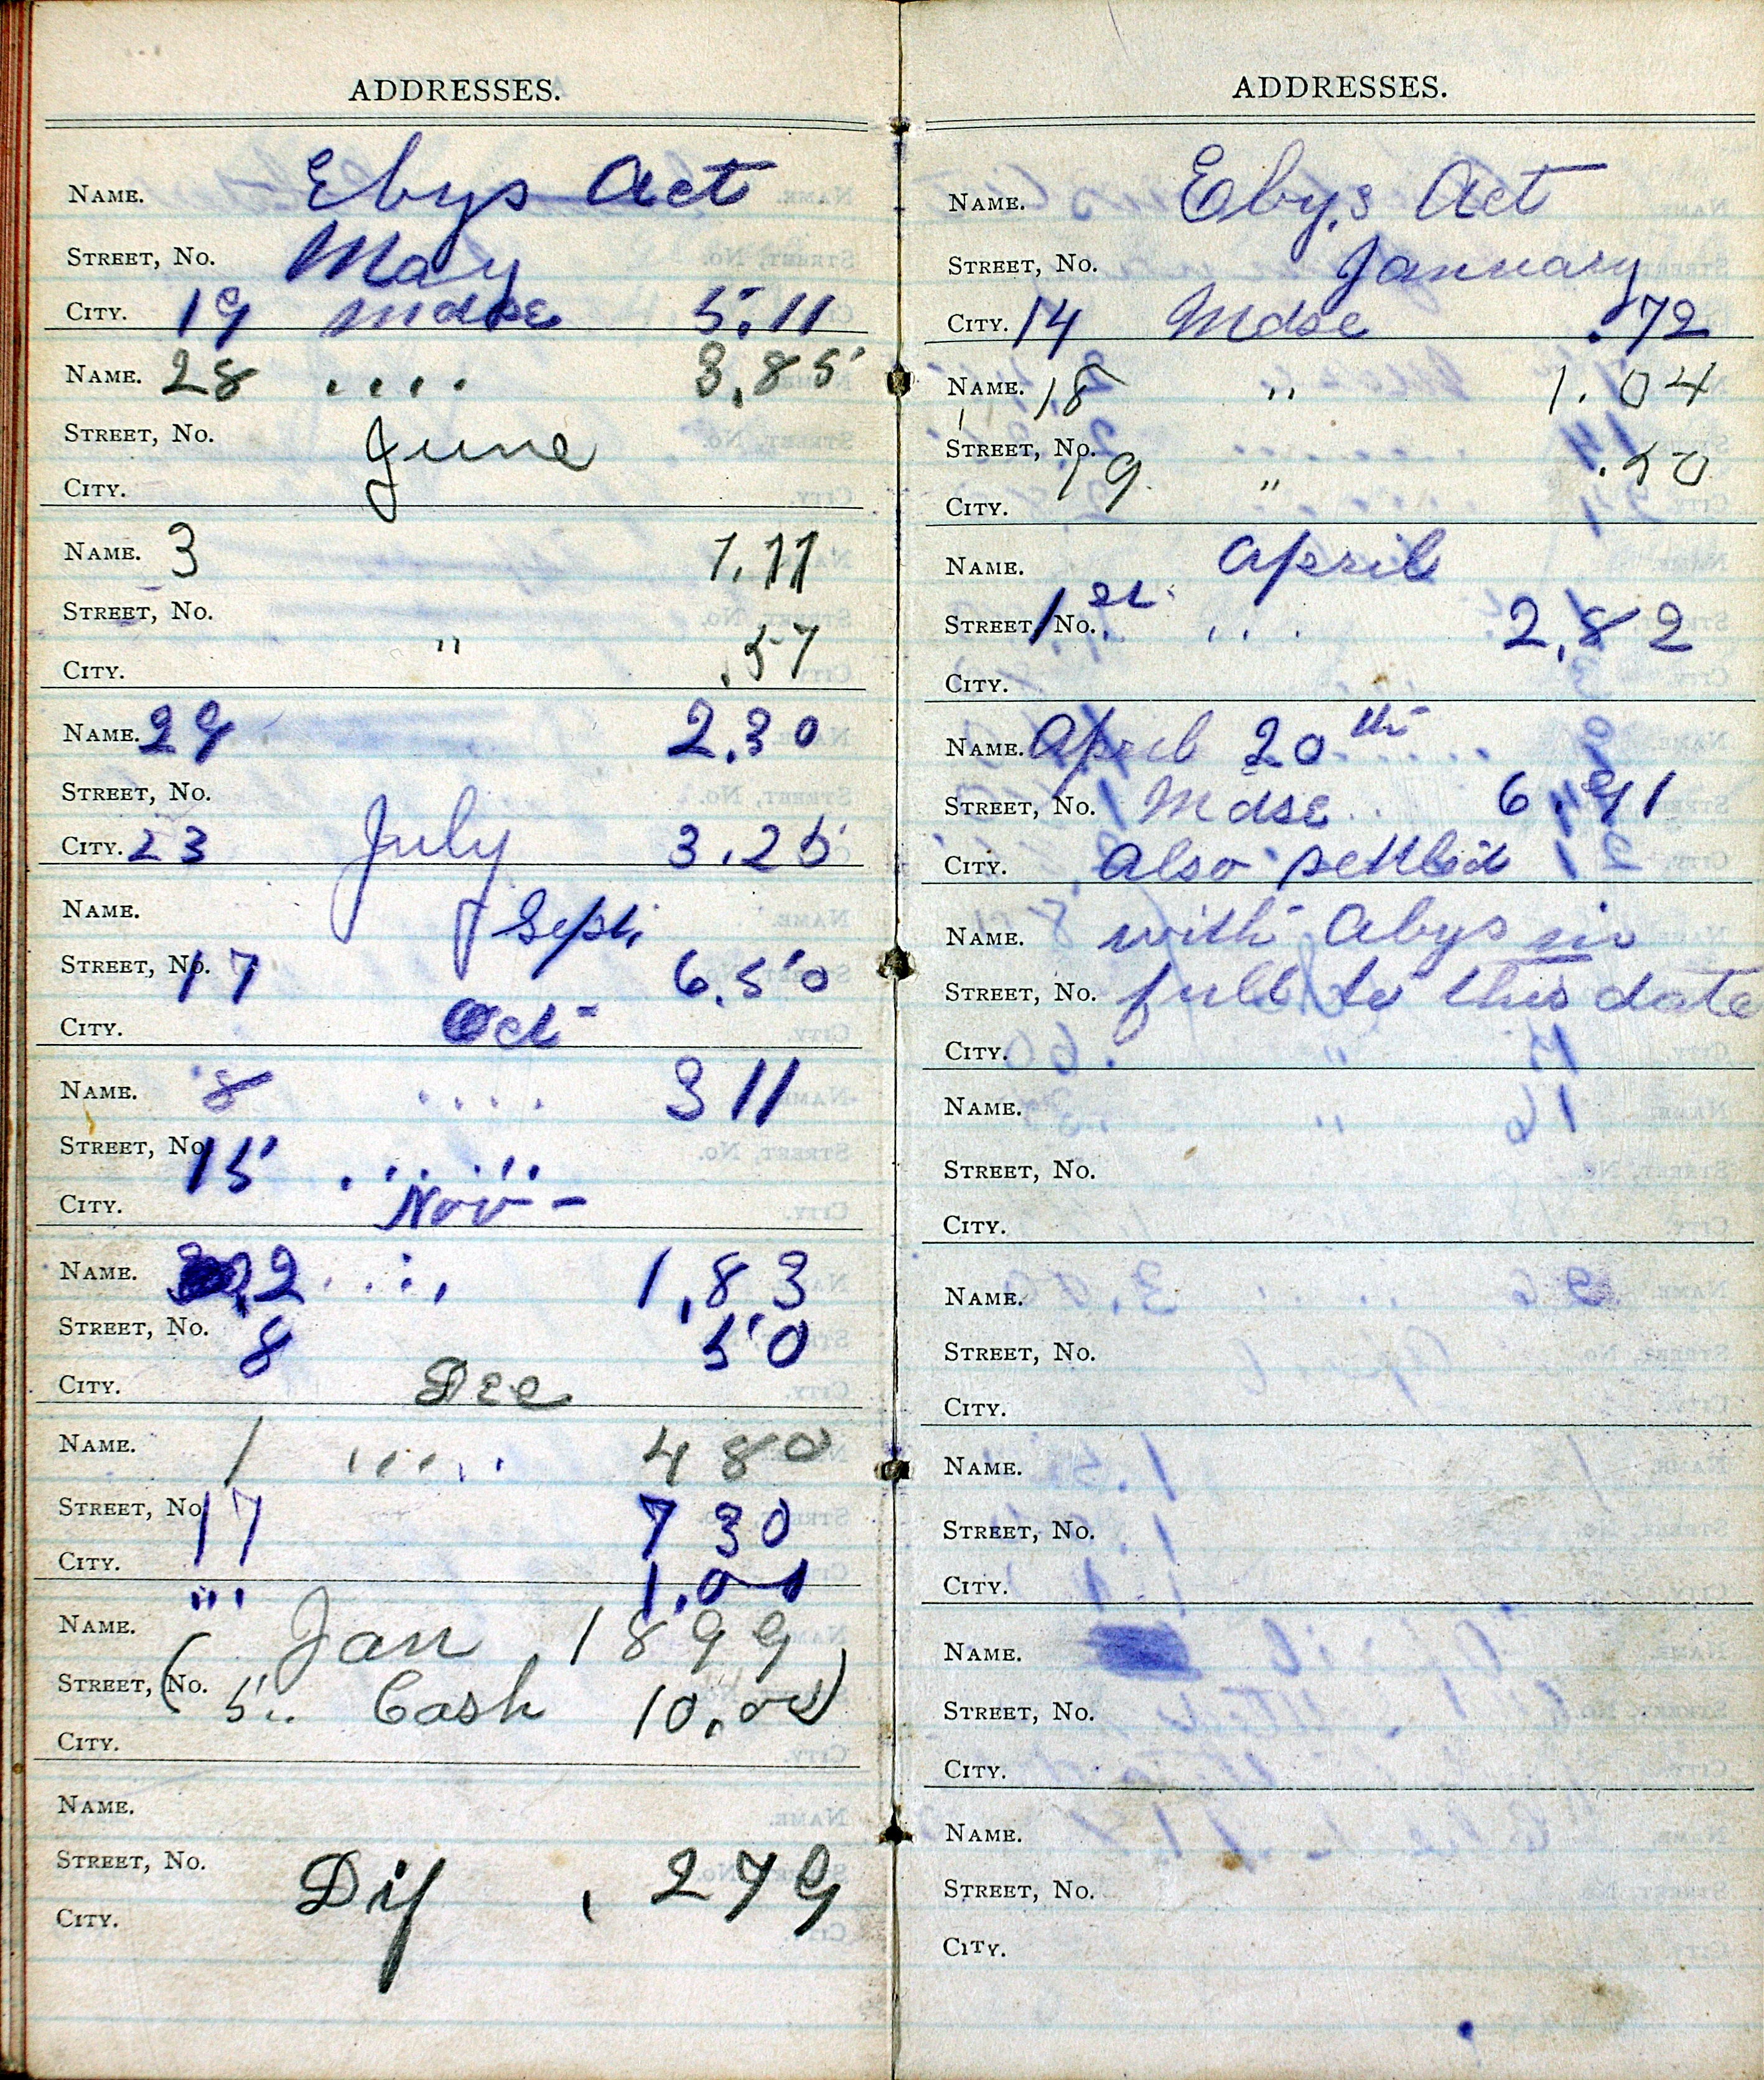 ADDRESSES.
NAME. Ebys Act
STREET, No. May
CITY. 19 Mdse 5.11
NAME. 28 .... 3.85
STREET, No. June
CITY.
NAME. 3 1.11
STREET, No.
CITY. " .57
NAME. 29 2.30
STREET, No.
CITY. 23 July 3.25
NAME. Sept.
STREET, No. 17 6.50
CITY. Oct
NAME. 8 .... 3 11
STREET, No. 15 ......
CITY. Nov -
NAME. 2 .... 1,83
STREET, No. 8 50
CITY. Dec
NAME. 1 ...... 4 80
STREET, No. 17 7 30
CITY.
"' 1.00
NAME. Jan 1899
STREET, No. (5.. Cash 10.00)
CITY.
NAME.
STREET, No. Dif . 279
CITY.
ADDRESSES.
NAME. Eby,s Act
STREET, No. January
CITY. 14 Mdse .72
NAME. 18 " 1.04
STREET, No. 19 " .50
CITY.
NAME. April
STREET, No. 1st ... 2,82
CITY.
NAME. April 20th
STREET, No. Mdse .. 6.91
CITY. also settled
NAME. with Abys in
STREET, No. full to this date
CITY.
NAME.
STREET, No.
CITY.
NAME.
STREET, No.
CITY.
NAME.
STREET, No.
CITY.
NAME.
STREET, No.
CITY.
NAME.
STREET, No.
CITY.